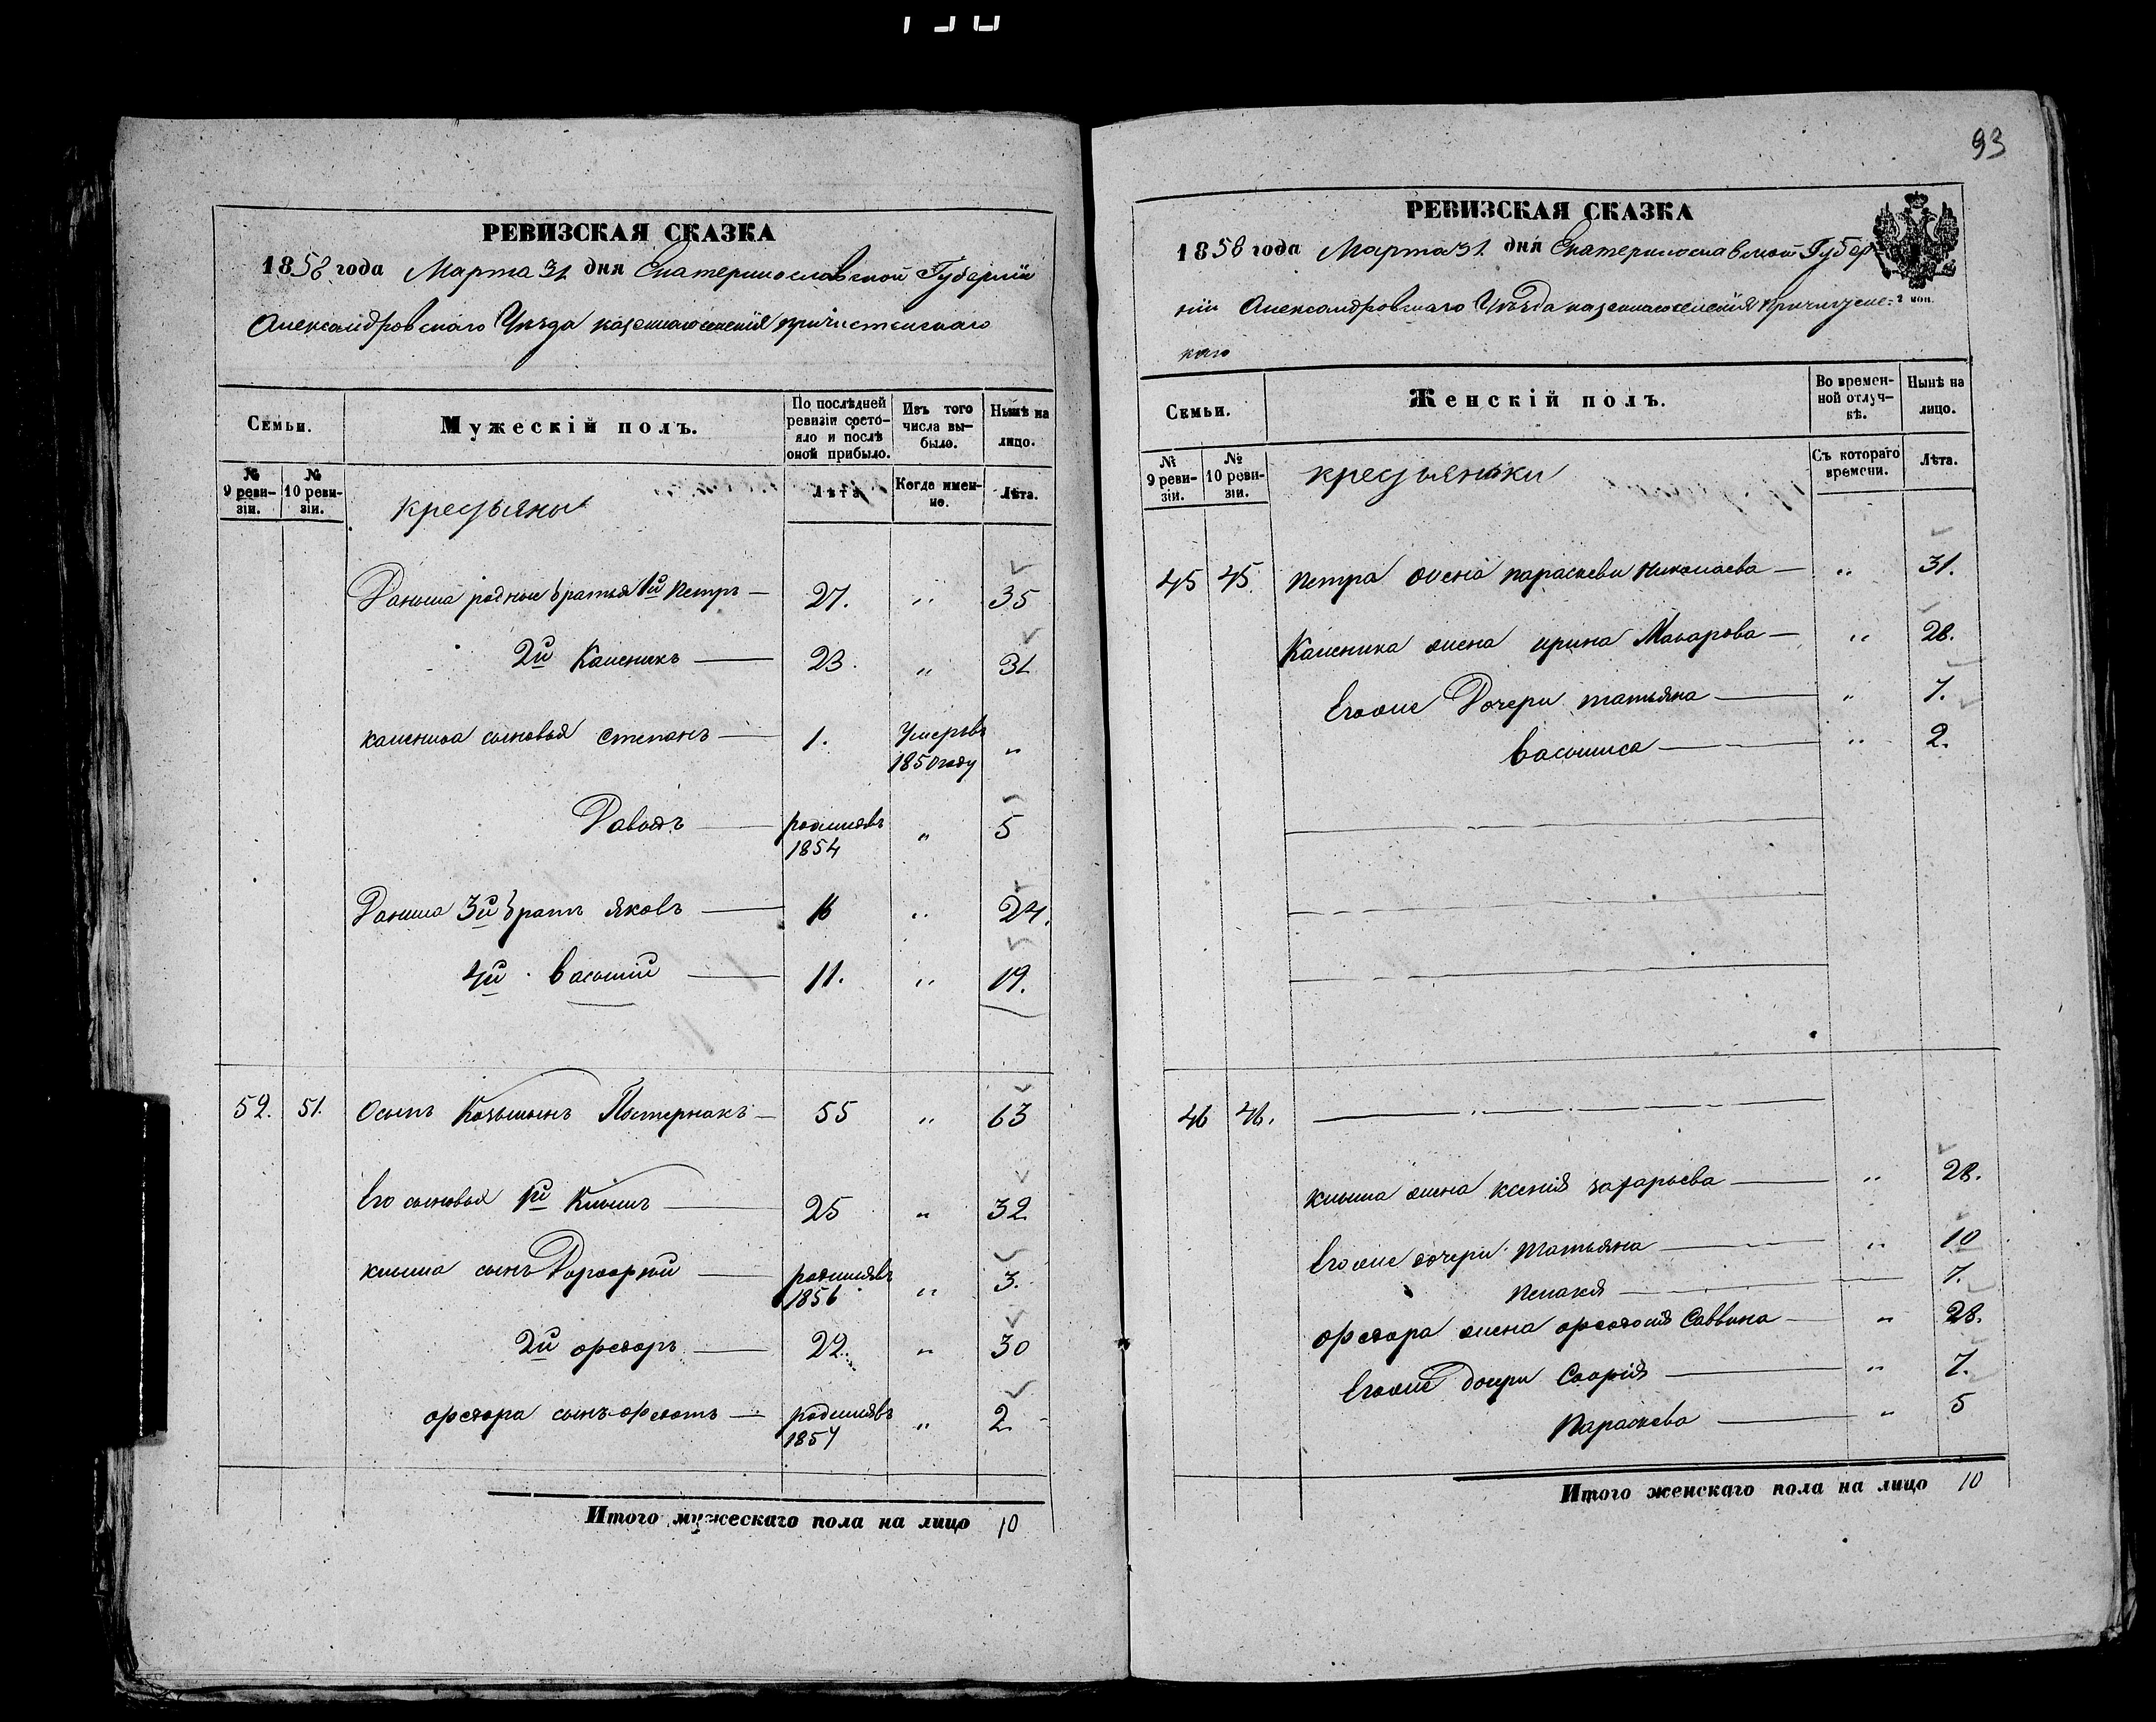 93
РЕВИЗСКАЯ СКАЗКА
1858 года Марта 31 дня Екатеринославской Губернiи
Александровскаго Уѣзда казеннаго селенiя пречистенскаго
Семьи.
Мужескiй полъ.
По послѣдней ревизiи состо-
яло и послѣ оной прибыло.
Изъ того числа вы-
было.
Нынѣ на лицо.
№ 9 реви-
зiи.
№ 10 реви-
зiи.
крестьяны
Лѣта
Когда имен-
но.
Лѣта.
Данила родные братья 1й Петръ — 27. " 35
2й Каленикъ — 23. " 31
каленика сыновья Степанъ — 1. Умеръ въ 1850 году "
Давыдъ — родился въ 1854 " 5
Данила 3й братъ яковъ — 16 " 24.
4й василiй — 11. " 19.
52. 51. Осипъ Козьминъ Пастернакъ — 55 " 63
Его сыновья 1й Климъ — 25 " 32
клима сынъ — родился въ 1856 " 3.
2й федоръ — 22. " 30
федора сынъ федотъ — родился въ 1857 " 2
Итого мужескаго пола на лицо 10
РЕВИЗСКАЯ СКАЗКА
1858 года Марта 31 дня Екатеринославской Губер
нiи Александровскаго Уѣзда казеннаго селенiя Пречистенс-
каго
2 коп.
Семьи.
Женскiй полъ.
Во времен-
ной отлуч-
кѣ.
Нынѣ на лицо.
№ 9 реви-
зiи.
№ 10 реви-
зiи.
крестьянки
Съ котораго времени.
Лѣта.
45 45. Петра жена параскева Николаева — " 31.
Каленика жена ирина Макарова — " 28.
Его же Дочери татьяна — " 7.
василиса — " 2.
46 46.
клима жена ксенiя захарьева — " 28.
Его же дочери Татьяна — " 10
Пелагия — 7.
федора жена федосiя Саввина — " 28.
Его же дочери Софiя — " 7.
Параскева — " 5
Итого женскаго пола на лицо 10